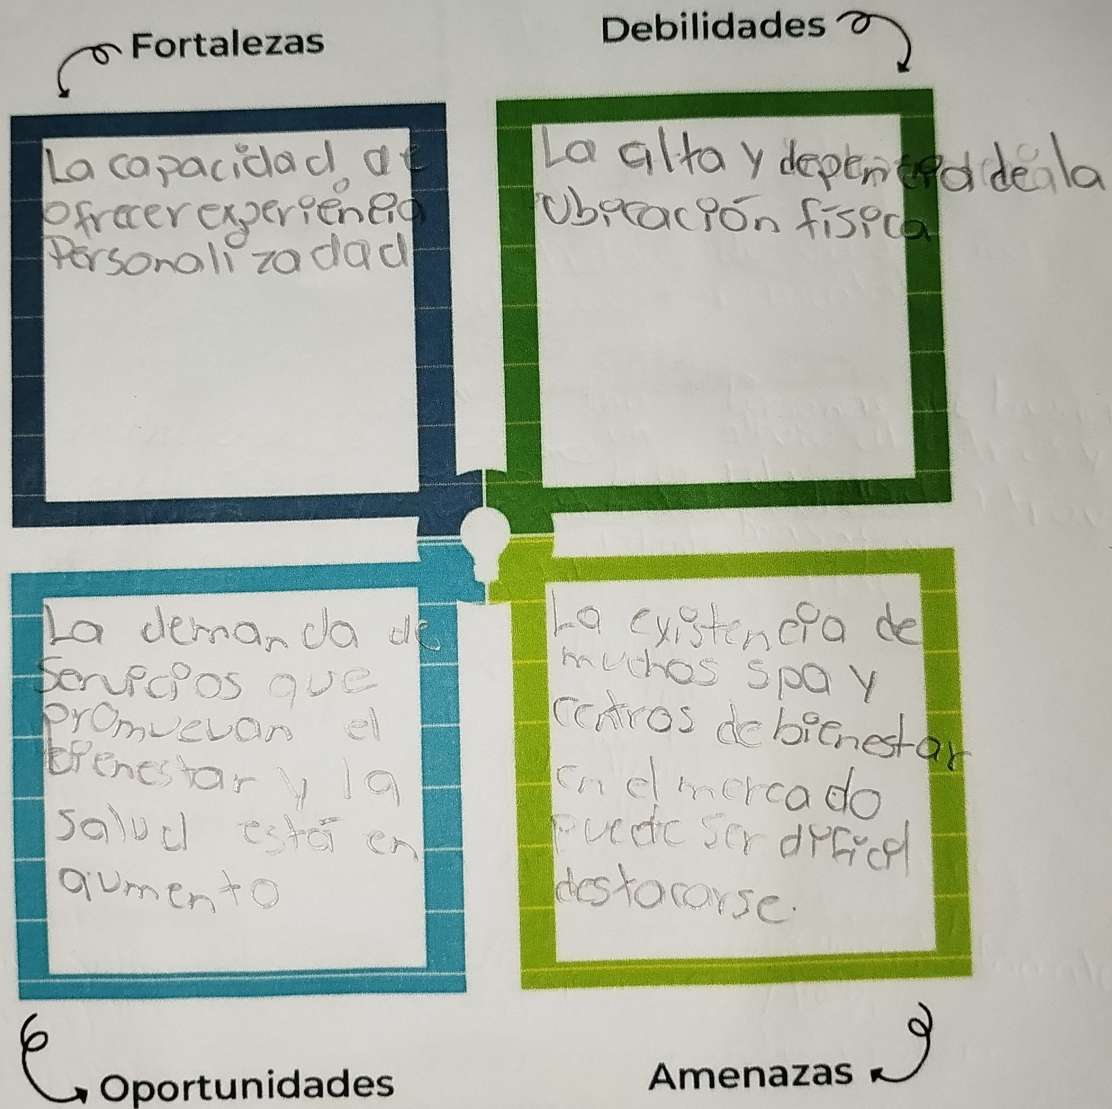 Fortalezas
La capacidad de
ofrecer experiencia
Personalizadad
Debilidades
La alta y dependeala
Ubicación física
La demanda de
Servicios que
promuevan el
bienestar y la
salud está en
aumento
Oportunidades
La existencia de
muchos spa y
centros de bienestar
en el mercado
puede ser dificil
destacarse.
Amenazas